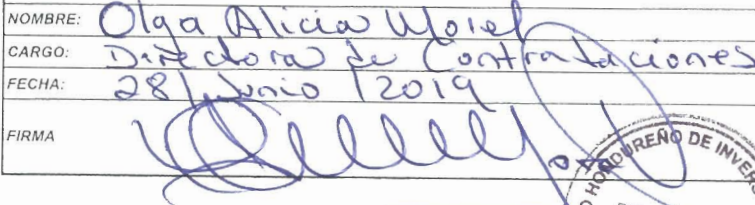 NOMBRE: Olga Alicia Morel
CARGO: Directora de Contrataciones
FECHA: 28/Junio/2019
FIRMA
HONDUREÑO DE INVER